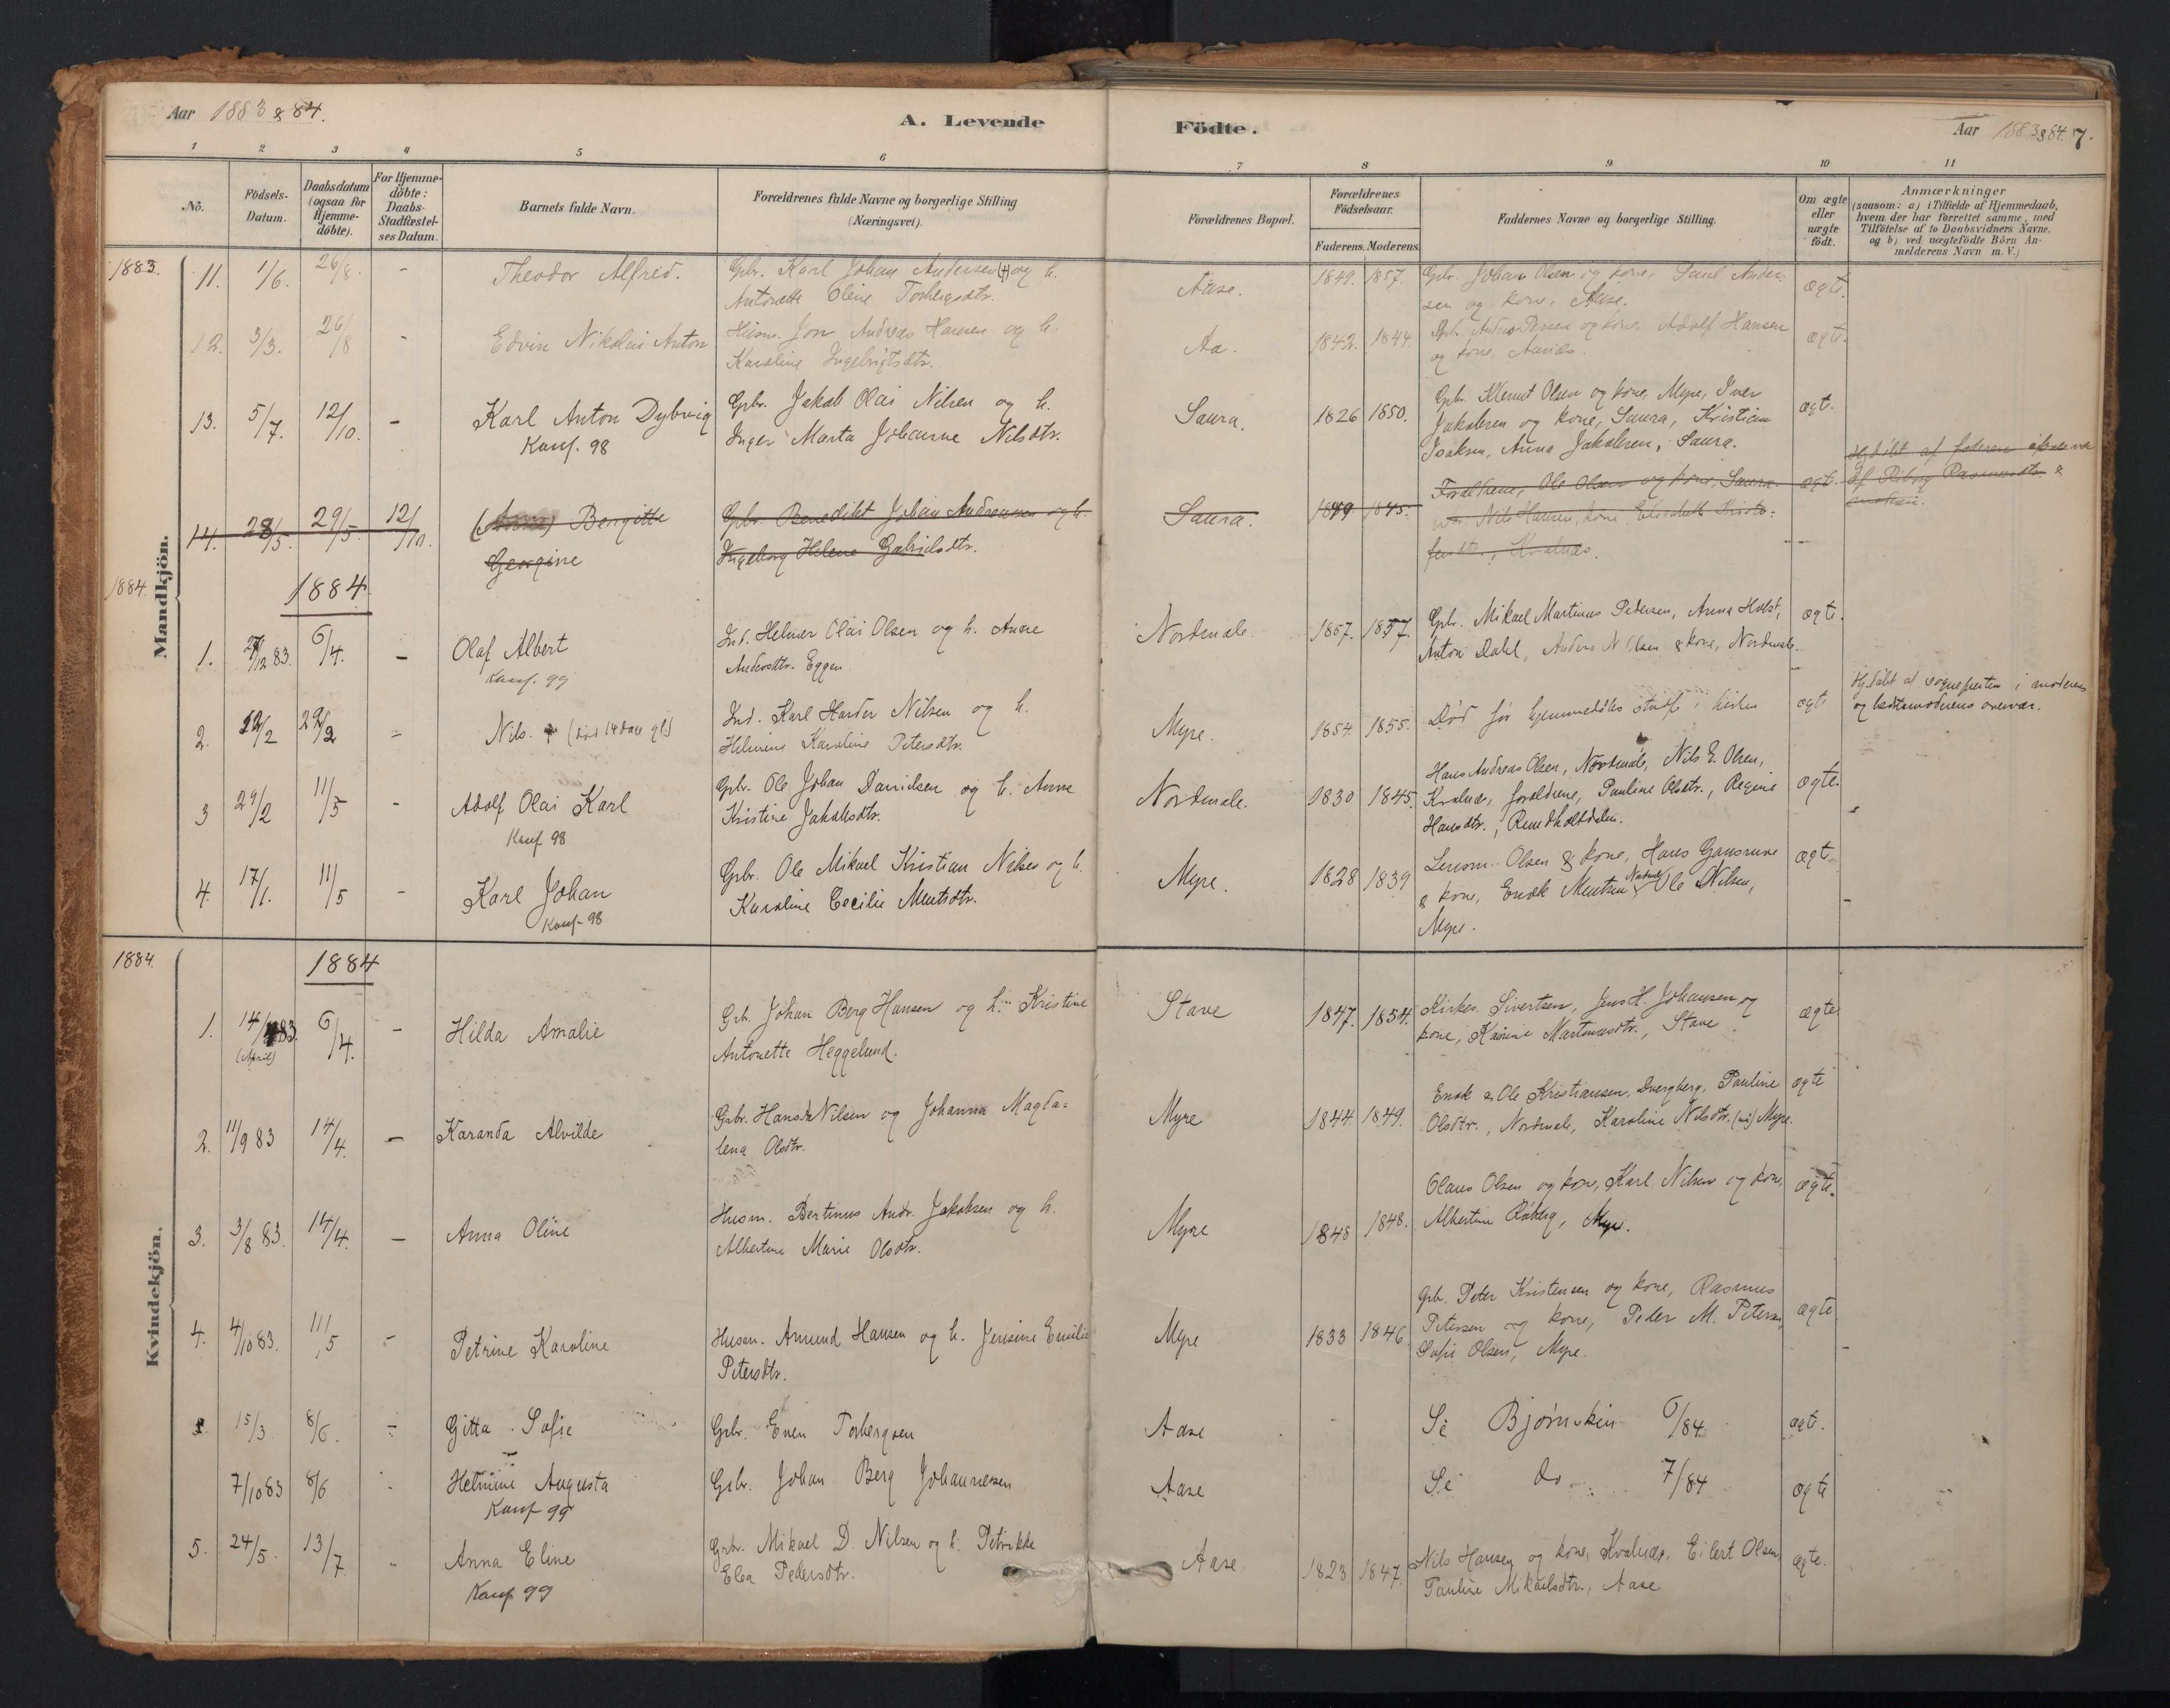 Aar 1883 & 84.
A. Levende
Födte.
Aar 1883 & 84. 7.
1 2 3 4 5 6 7 8 9 10 11
No.
Födsels-Datum.
Daabsdatum (ogsaa for Hjemme-döbte).
For Hjemme-döbte: Daabs-Stadfæstel-ses Datum.
Barnets fulde Navn.
Forældrenes fulde Navne og borgerlige Stilling (Næringsvei).
Forældrenes Bopæl.
Forældrenes Födselsaar.
Faderens. Moderens.
Faddernes Navne og borgerlige Stilling.
Om ægte eller uægte födt.
Anmærkninger
(saasom: a) i Tilfælde af Hjemmedaab, hvem der har forrettet samme, med Tilföielse af to Daabsvidners Navne. og b) ved uægtefödte Börn An-melderens Navn m. V.)
Mandkjön.
1883.
11. 1/6. 26/8. - Theodor Alfred. Gbr. Karl Johan Andersen (+) og h. Aase. 1849. 1857. Gbr. Johan Olsen og kone, Ander- ægte.
Antonette Oline Torbergsdtr. sen og kone, Aase.
12. 3/3. 26/8 - Edvin Nikolai Anton Husm. Jon Andreas Hansen og h. Aa. 1842. 1844. og kone, Adolf Hansen ægte.
Karoline Ingebrigtsdtr. og kone, Aanæs.
13. 5/7. 12/10. - Karl Anton Dybvig Gbr. Jakob Olai Nilsen og h. Saura. 1826 1850. Gbr. Klemet Olsen og kone, Myre, Iver ægt.
Konf. 98 Inger Marta Johanne Nilsdtr. Jakobsen og kone, Saura, Kristian
Isaksen, Anna Jakobsen, Saura.
14. 28/5. 29/5. 12/10. (Anna) Bergitte Gbr. Benedikt Johan Andreassen og h. Saura. 1849 1845. Forældrene, Ole Olsen og kone, Saura ægt. Hj.döbt af faderen
Georgine Ingeborg Helene Gabrielsdtr. Nils Hansen, kone, Elisabeth Kristo-
fersdtr., Kvalnæs.
1884. 1884
1. 27/12 83. 6/4. - Olaf Albert Ind. Helmer Olai Olsen og h. Anne Nordmele 1857. 1857. Gbr. Mikael Martinus Pedersen, Anna Holst, ægte.
Konf. 99 Andersdtr. Eggen Anton Dahl, Anders Nilsen & kone, Nordmele.
2. 12/2 22/2 - Nils. + (död 14 dage gl.) Ind. Karl Harder Nilsen og h. Myre. 1854. 1855. Död för hjemmedöbts stadf. i kirken ægte Hj.döbt af i moderens
Helmine Karoline Petersdtr. og bedstemoderens overvær.
3 29/2 11/5 - Adolf Olai Karl Gbr. Ole Johan Danielsen og h. Anne Nordmele. 1830 1845. Hans Andreas Olsen, Nordmele, Nils E. Olsen, ægte.
Konf 98 Kristine Jakobsdtr. Kvalnæs, forældrene, Pauline Olsdtr., Regine
Hansdtr., Rundholtdalen.
4. 17/1. 11/5 - Karl Johan Gbr. Ole Mikael Kristian Nilsen og h. Myre. 1828 1839 Olsen & kone, Hans ægte
Konf 98 Karoline Cecilie Mentsdtr. & kone, Enok Mentsen Ole Nilsen,
Myre.
Kvindekjön.
1884. 1884
1. 14/4 83. 6/4. - Hilda Amalie Gbr. Johan Berg Hansen og h. Kristine Stave 1847. 1854. Kirkes. Sivertsen, Jens H. Johansen og ægte.
(April) Antonette Heggelund. kone, Martinusdtr., Stave
2. 11/9 83 14/4. - Karanda Alvilde Gbr. Hans Nilsen og Johanna Magda- Myre 1844. 1849. Enok & Ole Kristiansen, Dverberg, Pauline ægte
lena Olsdtr. Olsdtr., Nordmele, Karoline Nilsdtr. Myre.
3. 3/8 83. 14/4. - Anna Oline Husm. Bertinus Andr. Jakobsen og h. Myre 1848 1848. Olaus Olsen og kone, Karl Nilsen og kone, ægte.
Albertine Marie Olsdtr. Albertine Röberg, Myre.
4. 4/10 83. 11/5 - Petrine Karoline Husm. Amund Hansen og h. Jensine Emilie Myre 1833 1846 Gbr. Peter Kristensen og kone, Rasmus ægte
Petersdtr. Petersen og kone, Peder M. Petersen,
Sofie Olsen, Myre.
15/3 8/6. - Gitta Sofie Gbr. Even Torbergsen Aase Se Björnskin 6/84 ægt.
7/10 83 8/6 Helmine Augusta Gbr. Johan Berg Johannessen Aase Se do 7/84 ægte
Konf 99
5. 24/5. 13/7 Anna Eline Gbr. Mikael D. Nilsen og h. Petrikke Aase. 1823 1847. Nils Hansen og kone, Kvalnæs, Eilert Olsen, ægte.
Konf 99 Elea Pedersdtr. Pauline Mikaelsdtr., Aase